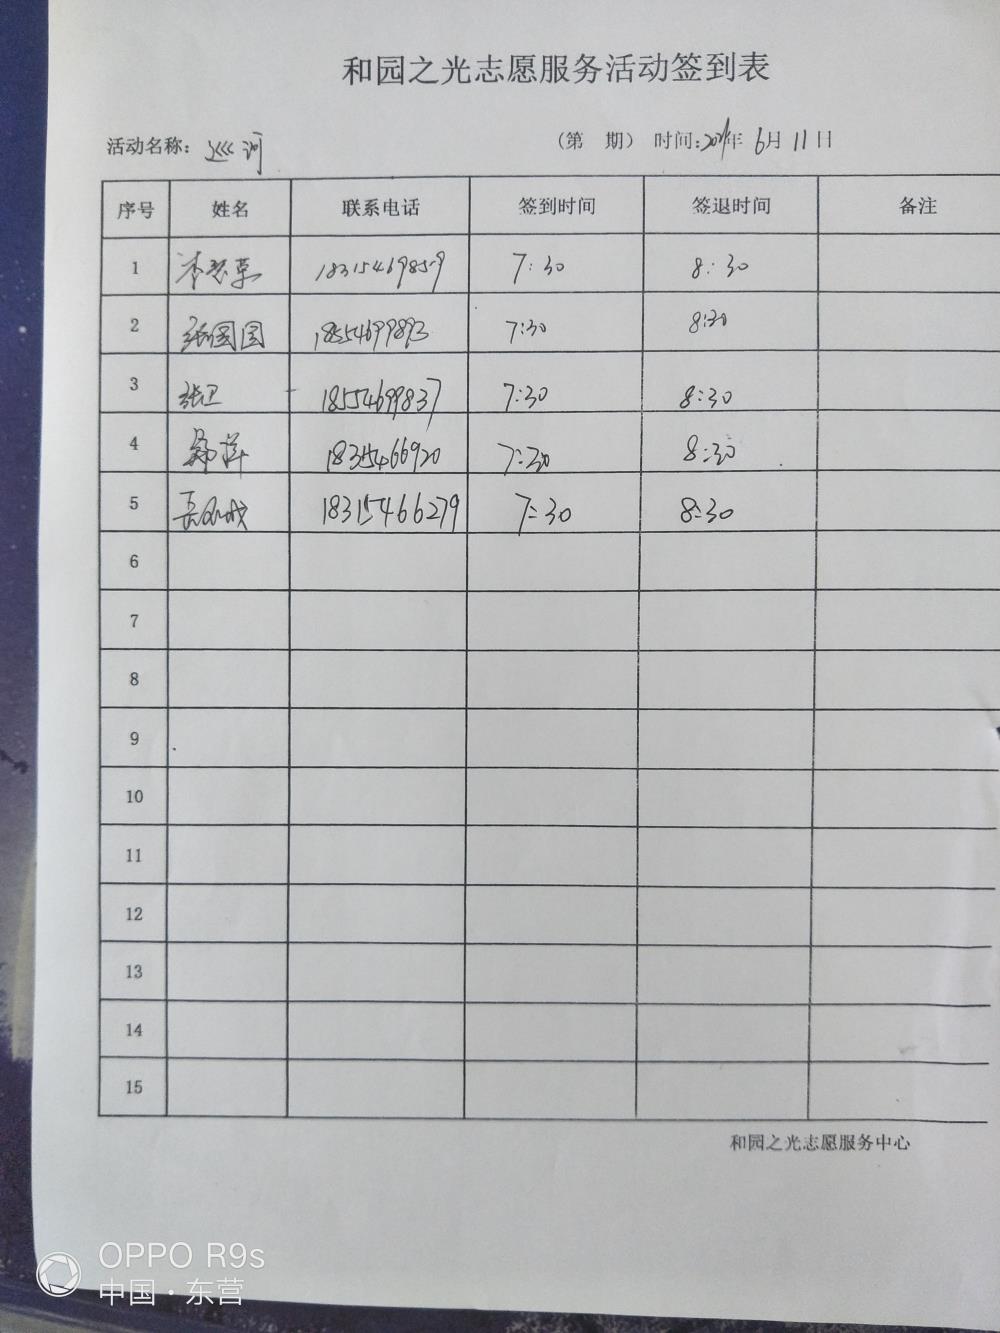 和园之光志愿服务活动签到表
活动名称: 巡河 (第 期) 时间:2021年 6月 11日
序号 姓名 联系电话 签到时间 签退时间 备注
1 18315469859 7:30 8:30
2 张园园 18554699893 7:30 8:30
3 张卫 18554699837 7:30 8:30
4 7:30 8:30
5 18315466279 7:30 8:30
6
7
8
9
10
11
12
13
14
15
和园之光志愿服务中心
OPPO R9s
中国·东营